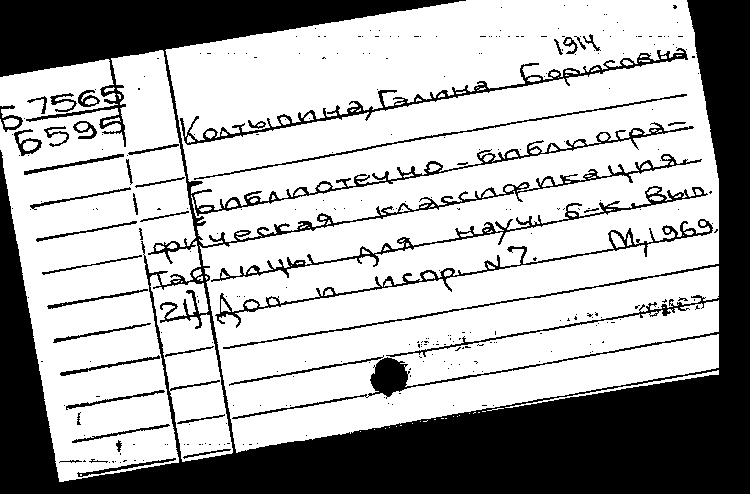 1914
Б 7565
Колтыпина, Галина Борисовна
Б595
[Библиотечно-библиогра-
фическая классификация.
Таблицы для науч. б-к. Вып.
21] Доп. и испр. N7. М., 1969.